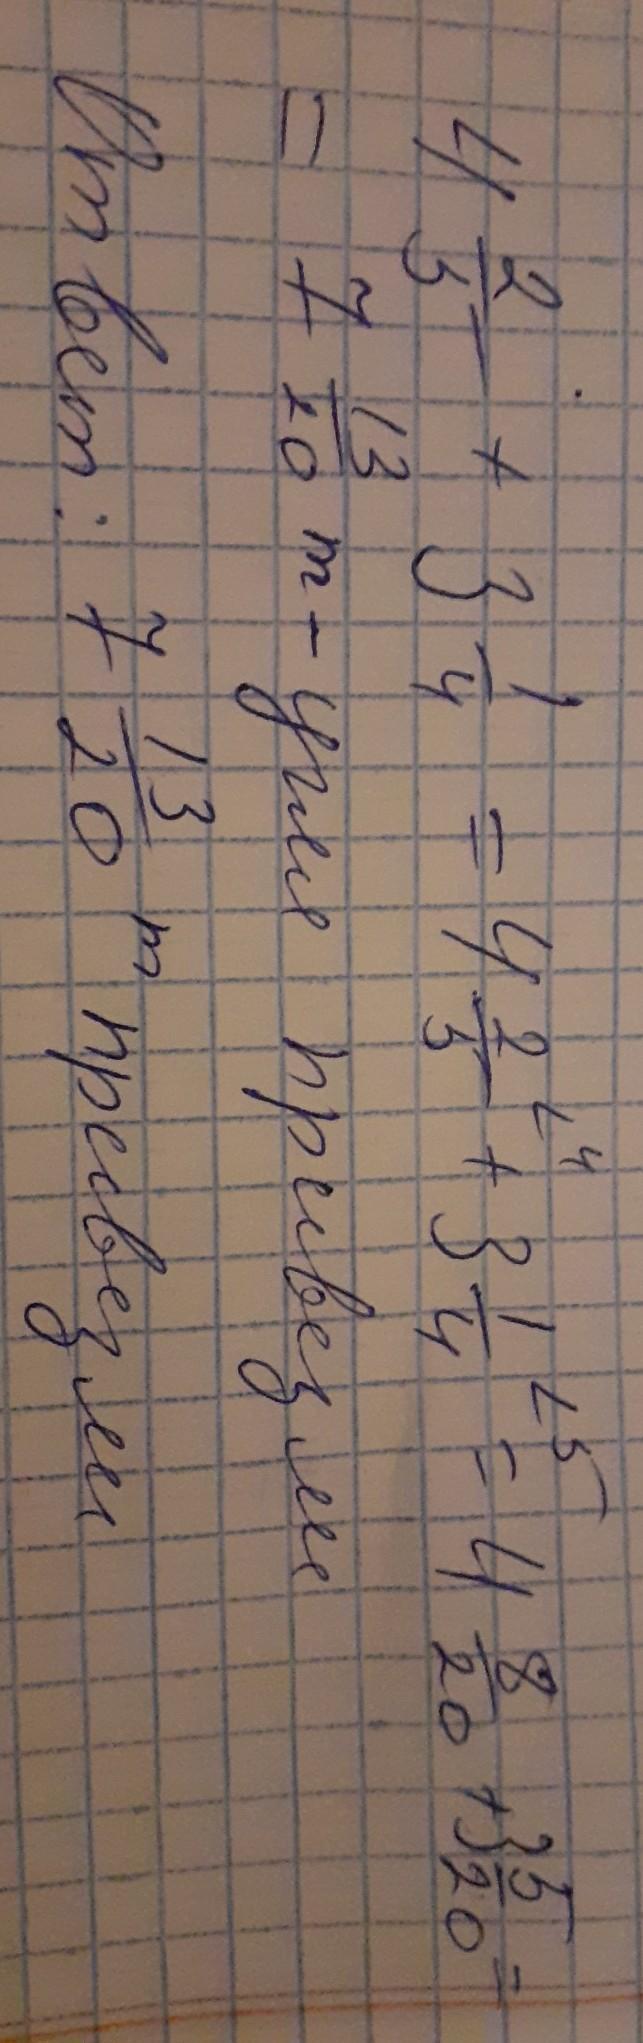 4 2/5 + 3 1/4 = 4 2/5 ∟4 + 3 1/4 ∟5 = 4 8/20 + 3 5/20 =
= 7 13/20 т - угля привезли
Ответ: 7 13/20 т привезли